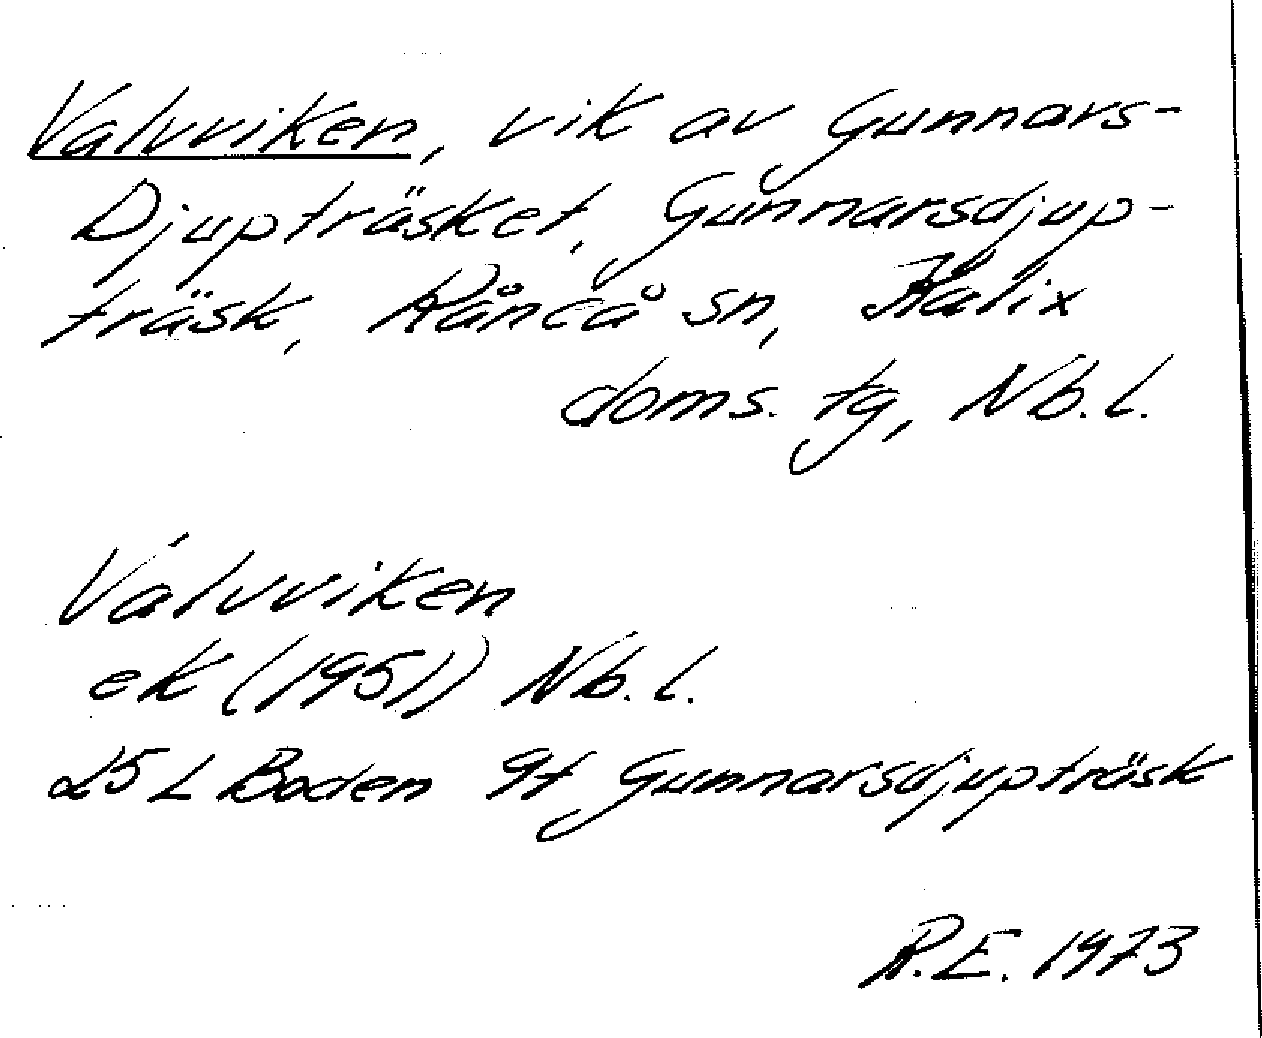 Valvviken, vik av Gunnars-
Djupträsket, Gunnarsdjup-
träsk, Råneå sn, Kalix
doms. tg, Nb. l.
Valvviken
ek (1951) Nb. l.
25 L Boden 9f Gunnarsdjupträsk
R.E. 1973